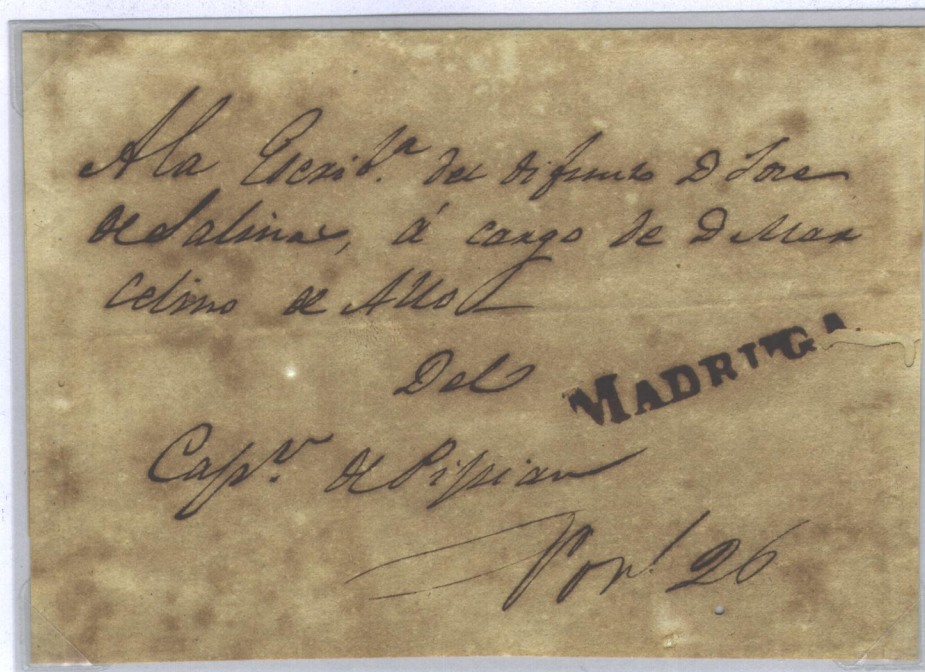 A la Escrib.ª del difunto D Jose
de Salinas, á cargo de D Mar
celino de Allo
Del
MADRUGA
Cap.n de Pipian
26